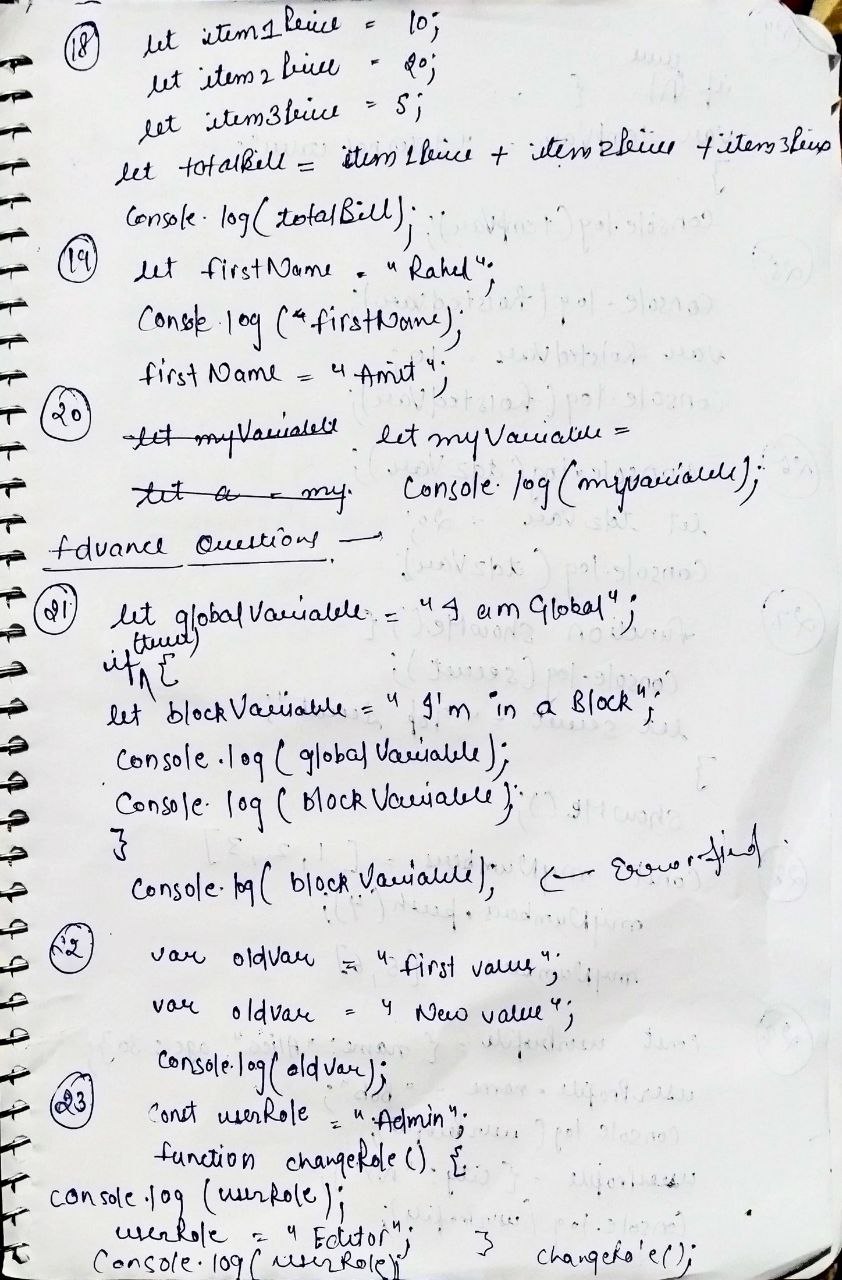 (18) let item1Price = 10;
let item2Price = 20;
let item3Price = 5;
let totalBill = item1Price + item2Price + item3Price
Console.log(totalBill);
(19) let firstName = "Rahel";
Console.log("firstName);
first Name = "Amit";
(20) let myVariable let myVariable =
let a = my. Console.log(myvariable);
Advance Questions →
(21) let globalVariable = "I am Global";
(true)
if {
let blockVariable = "I'm in a Block";
Console.log(globalVariable);
Console.log(blockVariable);
}
Console.log(blockVariable); ← Error find.
(22) var oldVar = "first value";
var oldvar = "New value";
Console.log(oldvar);
(23) Const userRole = "Admin";
function changeRole() {
console.log(userRole);
userRole = "Editor"; }
Console.log(userRole); changeRole();